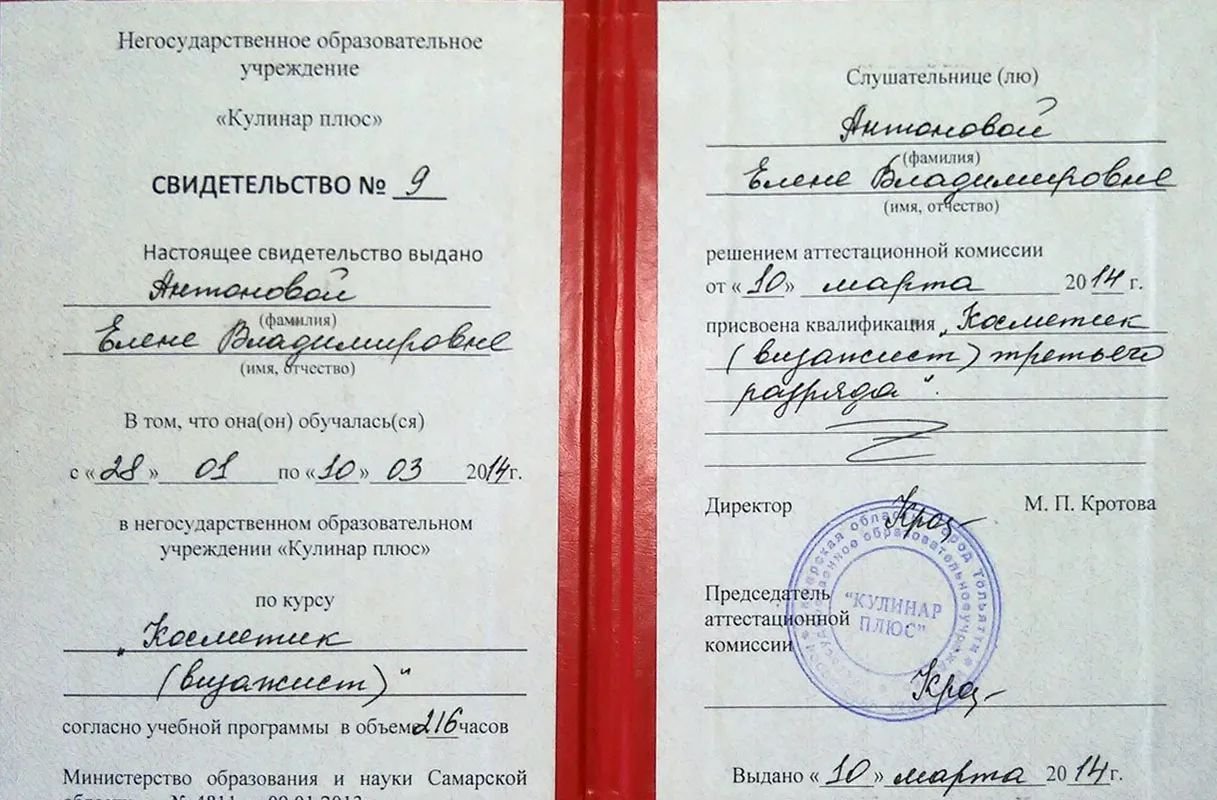 Негосударственное образовательное
учреждение
«Кулинар плюс»
СВИДЕТЕЛЬСТВО № 9
Настоящее свидетельство выдано
Антоновой
(фамилия)
Елене Владимировне
(имя, отчество)
В том, что она(он) обучалась(ся)
с «28» 01 по «10» 03 2014г.
в негосударственном образовательном
учреждении «Кулинар плюс»
по курсу
„Косметик
(визажист)“
согласно учебной программы в объеме 216 часов
Министерство образования и науки Самарской
Слушательнице (лю)
Антоновой
(фамилия)
Елене Владимировне
(имя, отчество)
решением аттестационной комиссии
от «10» марта 2014 г.
присвоена квалификация „Косметик
(визажист) третьего
разряда“.
Директор М. П. Кротова
Председатель
аттестационной
комиссии
"КУЛИНАР
ПЛЮС"
Выдано «10» марта 2014г.